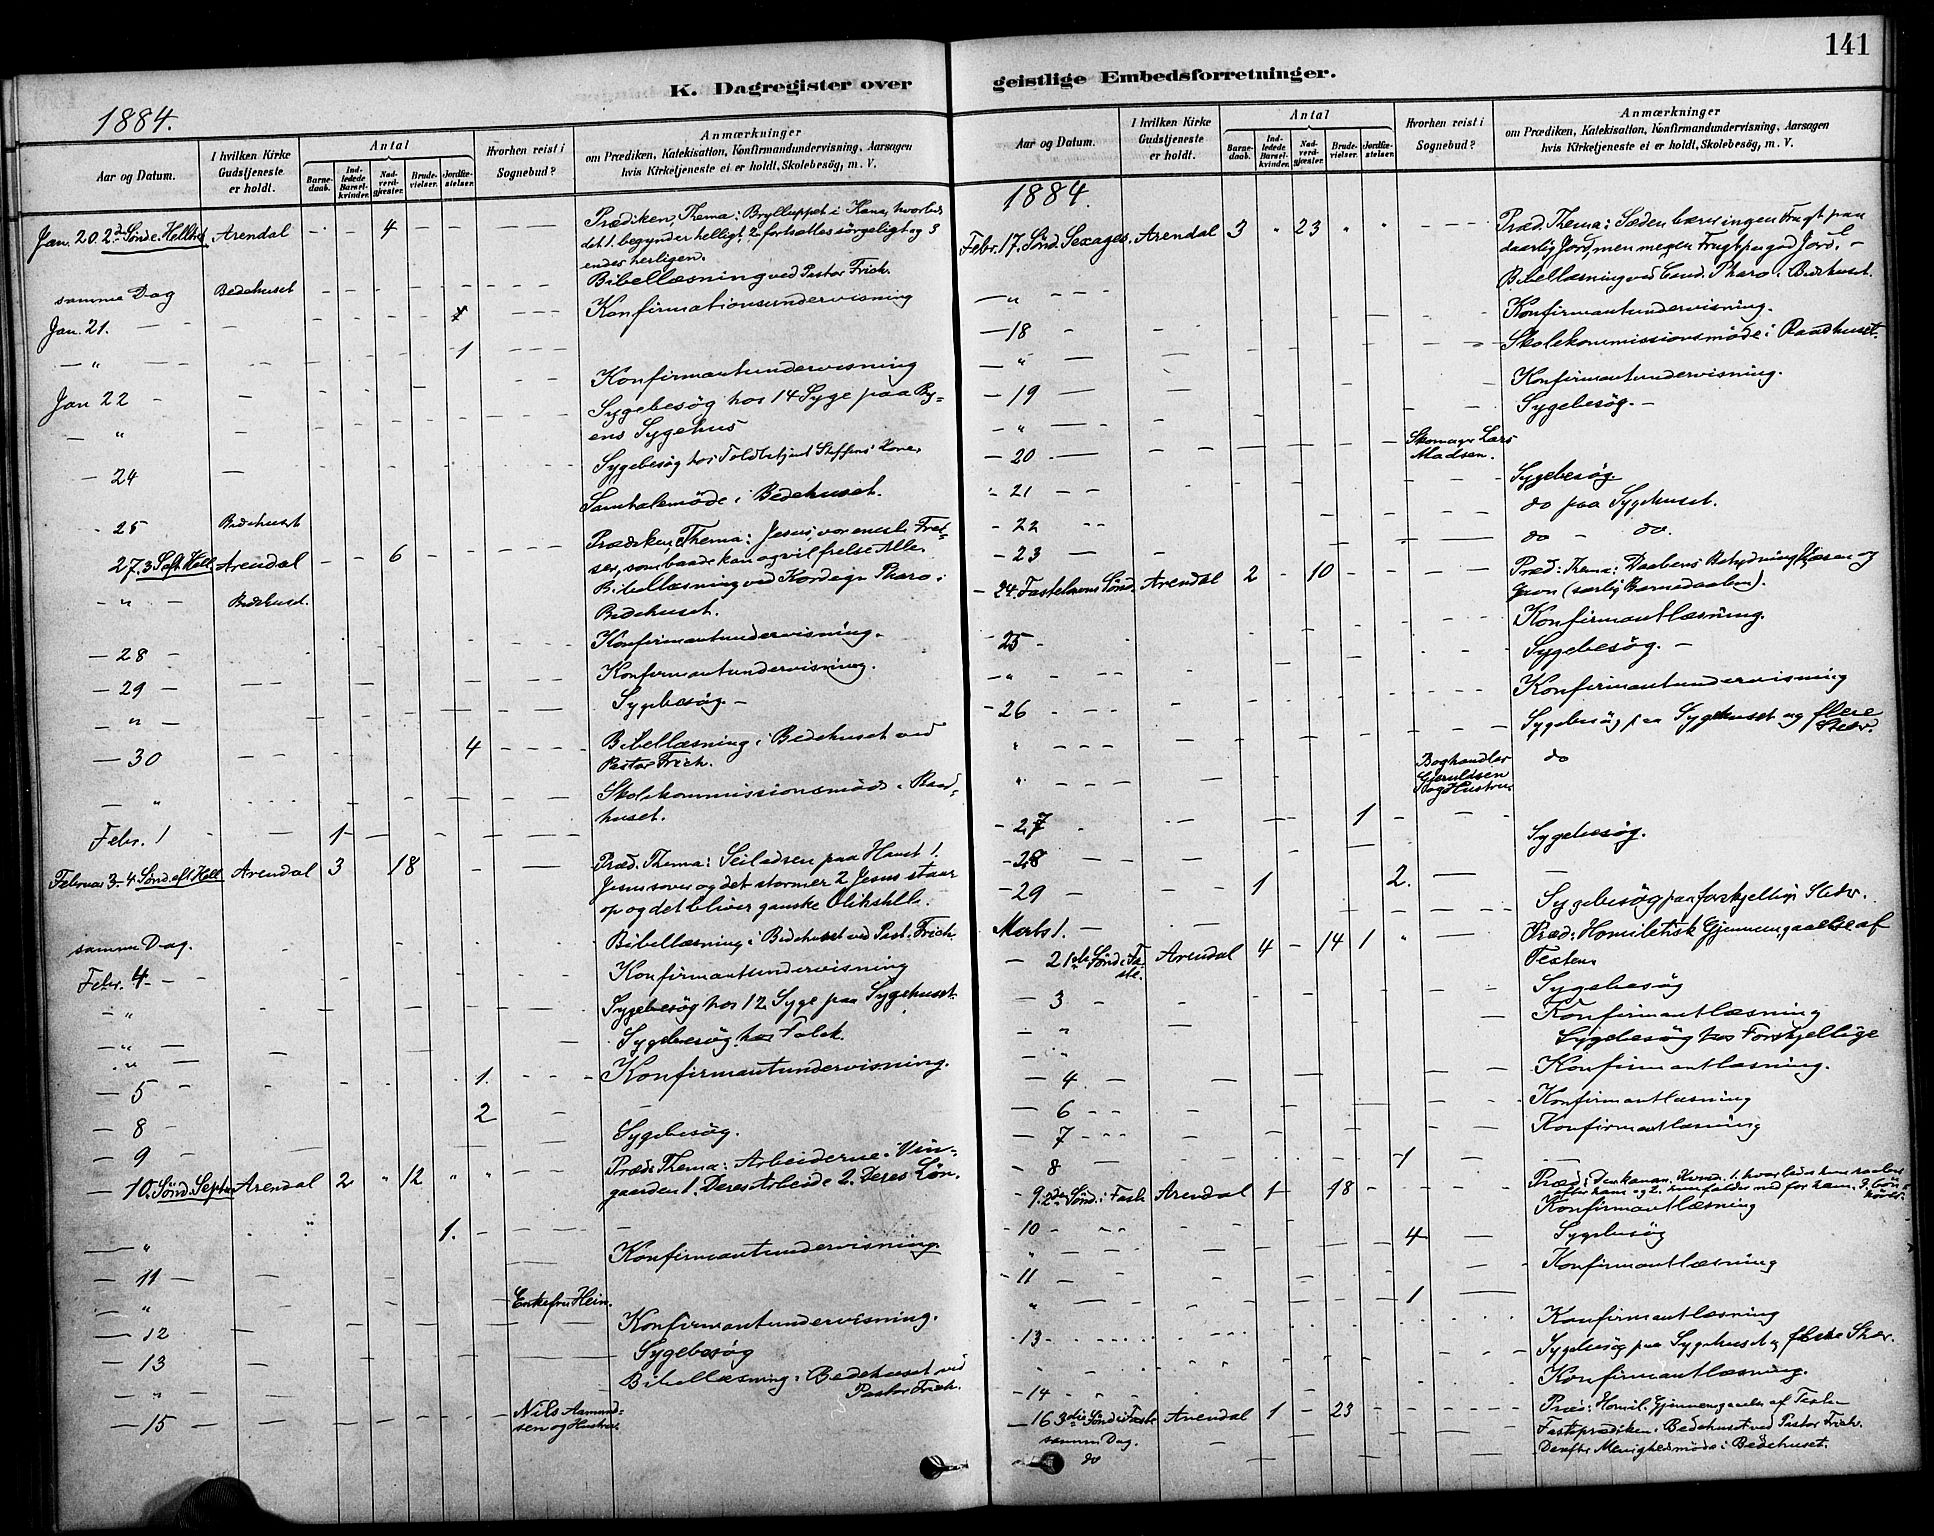 141
K. Dagregister over
1884.
Aar og Datum.
I hvilken Kirke Gudstjeneste er holdt.
Antal
Barne-daab.
Ind-ledede Barsel-kvinder.
Nad-verd-gjæster.
Brude-vielser.
Jordfæ-stelser.
Hvorhen reist i Sognebud?
Anmærkninger
om Prædiken, Katekisation, Konfirmandundervisning, Aarsagen
hvis Kirketjeneste ei er holdt, Skolebesøg, m. V.
Jan. 20. 2d Sønd e. Hell Arendal - - 4 - - Prædiken, Thema: Brylluppet i Kana, hvorledes
det 1. begynder helligt, 2 fortsættes sørgeligt og 3
ender herligen.
samme Dag Bedehuset - - - - - Bibellæsning ved Pastor Frich.
Jan. 21. - - Konfirmationsundervisning
- " - 1
Jan 22 - Konfirmantundervisning
- " - Sygebesøg hos 14 Syge paa By-
ens Sygehus
- 24 - Sygebesøg hos Toldbetjent Steffens Kone.
- 25 Bedehuset Samtalemøde i Bedehuset.
27. 3 S. eft. Hell. Arendal - - 6 - - Prædiken, Thema: Jesus, vor eneste Frel-
ser, som baade kan og vil frelse Alle.
- " - Bedehuset. Bibellæsning ved Kordegn Pharo i
Bedehuset.
- 28 - Konfirmantundervisning.
- 29 - Konfirmantundervisning.
- " - Sygebesøg. -
- 30 4 Bibellæsning i Bedehuset ved
Pastor Frich.
- " Skolekommissionsmøde i Raad-
huset.
Febr. 1 - - 1 -
Februar 3. 4. Sønd. eft Hell Arendal 3 18 Præd. Thema: Seiladsen paa Havet 1.
Jesus sover og det stormer 2 Jesus staar
op og det bliver ganske blikstille.
samme Dag. Bibellæsning i Bedehuset ved Past. Frich.
Febr. 4 - - Konfirmantsundervisning
- " Sygebesøg hos 12 Syge paa Sygehuset.
- " Sygebesøg hos Folck.
- " Konfirmantundervisning.
- 5 1.
- 8 2
- 9 Sygebesøg.
- 10. Sønd. Septu Arendal 2 " 12 " " Præd. Thema: Arbeiderne i Vin-
gaarden 1. Deres Arbeide 2. Deres Løn.
- " 1. -
- 11 - Konfirmantundervisning
- " Enkefru Hein.
- 12 Konfirmantundervisning.
- 13 Sygebesøg
- " Bibellæsning i Bedehuset ved
Pastor Frich.
- 15 Nils Aamund-
sen og Hustru.
geistlige Embedsforretninger.
Aar og Datum.
I hvilken Kirke Gudstjeneste er holdt.
Antal
Barne-daab.
Ind-ledede Barsel-kvinder.
Nad-verd-gjæster.
Brude-vielser.
Jordfæ-stelser.
Hvorhen reist i Sognebud?
Anmærkninger
om Prædiken, Katekisation, Konfirmandundervisning, Aarsagen
hvis Kirketjeneste ei er holdt, Skolebesøg, m. V.
1884.
Febr. 17. Sønd. Sexages. Arendal 3 " 23 " " Præd. Thema: Sæden bærer ingen Frugt paa
daarlig Jord, men megen Frugt paa god Jord. -
- " - Bibellæsning ved Cand. Pharo i Bedehuset.
- 18 - Konfirmantundervisning.
- " - Skolekommissionsmøde i Raadhuset.
- 19 - Konfirmantundervisning.
- " - Sygebesøg. -
- 20 - Skomager Lars
Madsen.
- 21 Sygebesøg
- 22 do paa Sygehuset.
- 23 - do - do.
- 24. Fastelavns Sønd. Arendal 2 - 10 - - Præd: Thema: Daabens Betydning, Væsen og
Gavn (særlig Barnedaaben).
- 25 - Konfirmantlæsning.
- " - Sygebesøg. -
- 26 Konfirmantundervisning
" Sygebesøg paa Sygehuset og flere
Steder.
" Boghandler
Gjeruldsen
og Hustru. do
- 27 1
- 28 Sygebesøg.
- 29 - 1 2. -
Marts 1. - Sygebesøg paa forskjellige Steder.
- 2 1ste Sønd i Fa-
ste. Arendal 4 - 14 1 " Præd: Homiletisk Gjennemgaaelse af
Texten
- 3 - Sygebesøg
- " Konfirmantlæsning
- " Sygebesøg hos Forskjellige
- 4 - Konfirmantlæsning.
- 6 - Konfirmantlæsning
- 7 Konfirmantlæsning
- 8 1 -
- 9. 2den Sønd. i Faste Arendal 1 - 18 - - Præd: Den kanan. Kvind. 1. hvorledes hun raaber
efter ham og 2. hun falder ned for ham. 3. bøn-
hører.
- 10 Konfirmantlæsning
" 4 Sygebesøg
- 11 Konfirmantlæsning
" 1
- 13 Konfirmantlæsning
" Sygebesøg paa Sygehuset og flere Steder.
- 14 Konfirmantlæsning.
- 16 3die Sønd i Faste Arendal 1 - 23 - Præd: Homil. Gjennemgaaelse af Texten
samme Dag. Fasteprædiken i Bedehuset ved Pastor Frich.
do Derefter Menighedsmøde i Bedehuset.